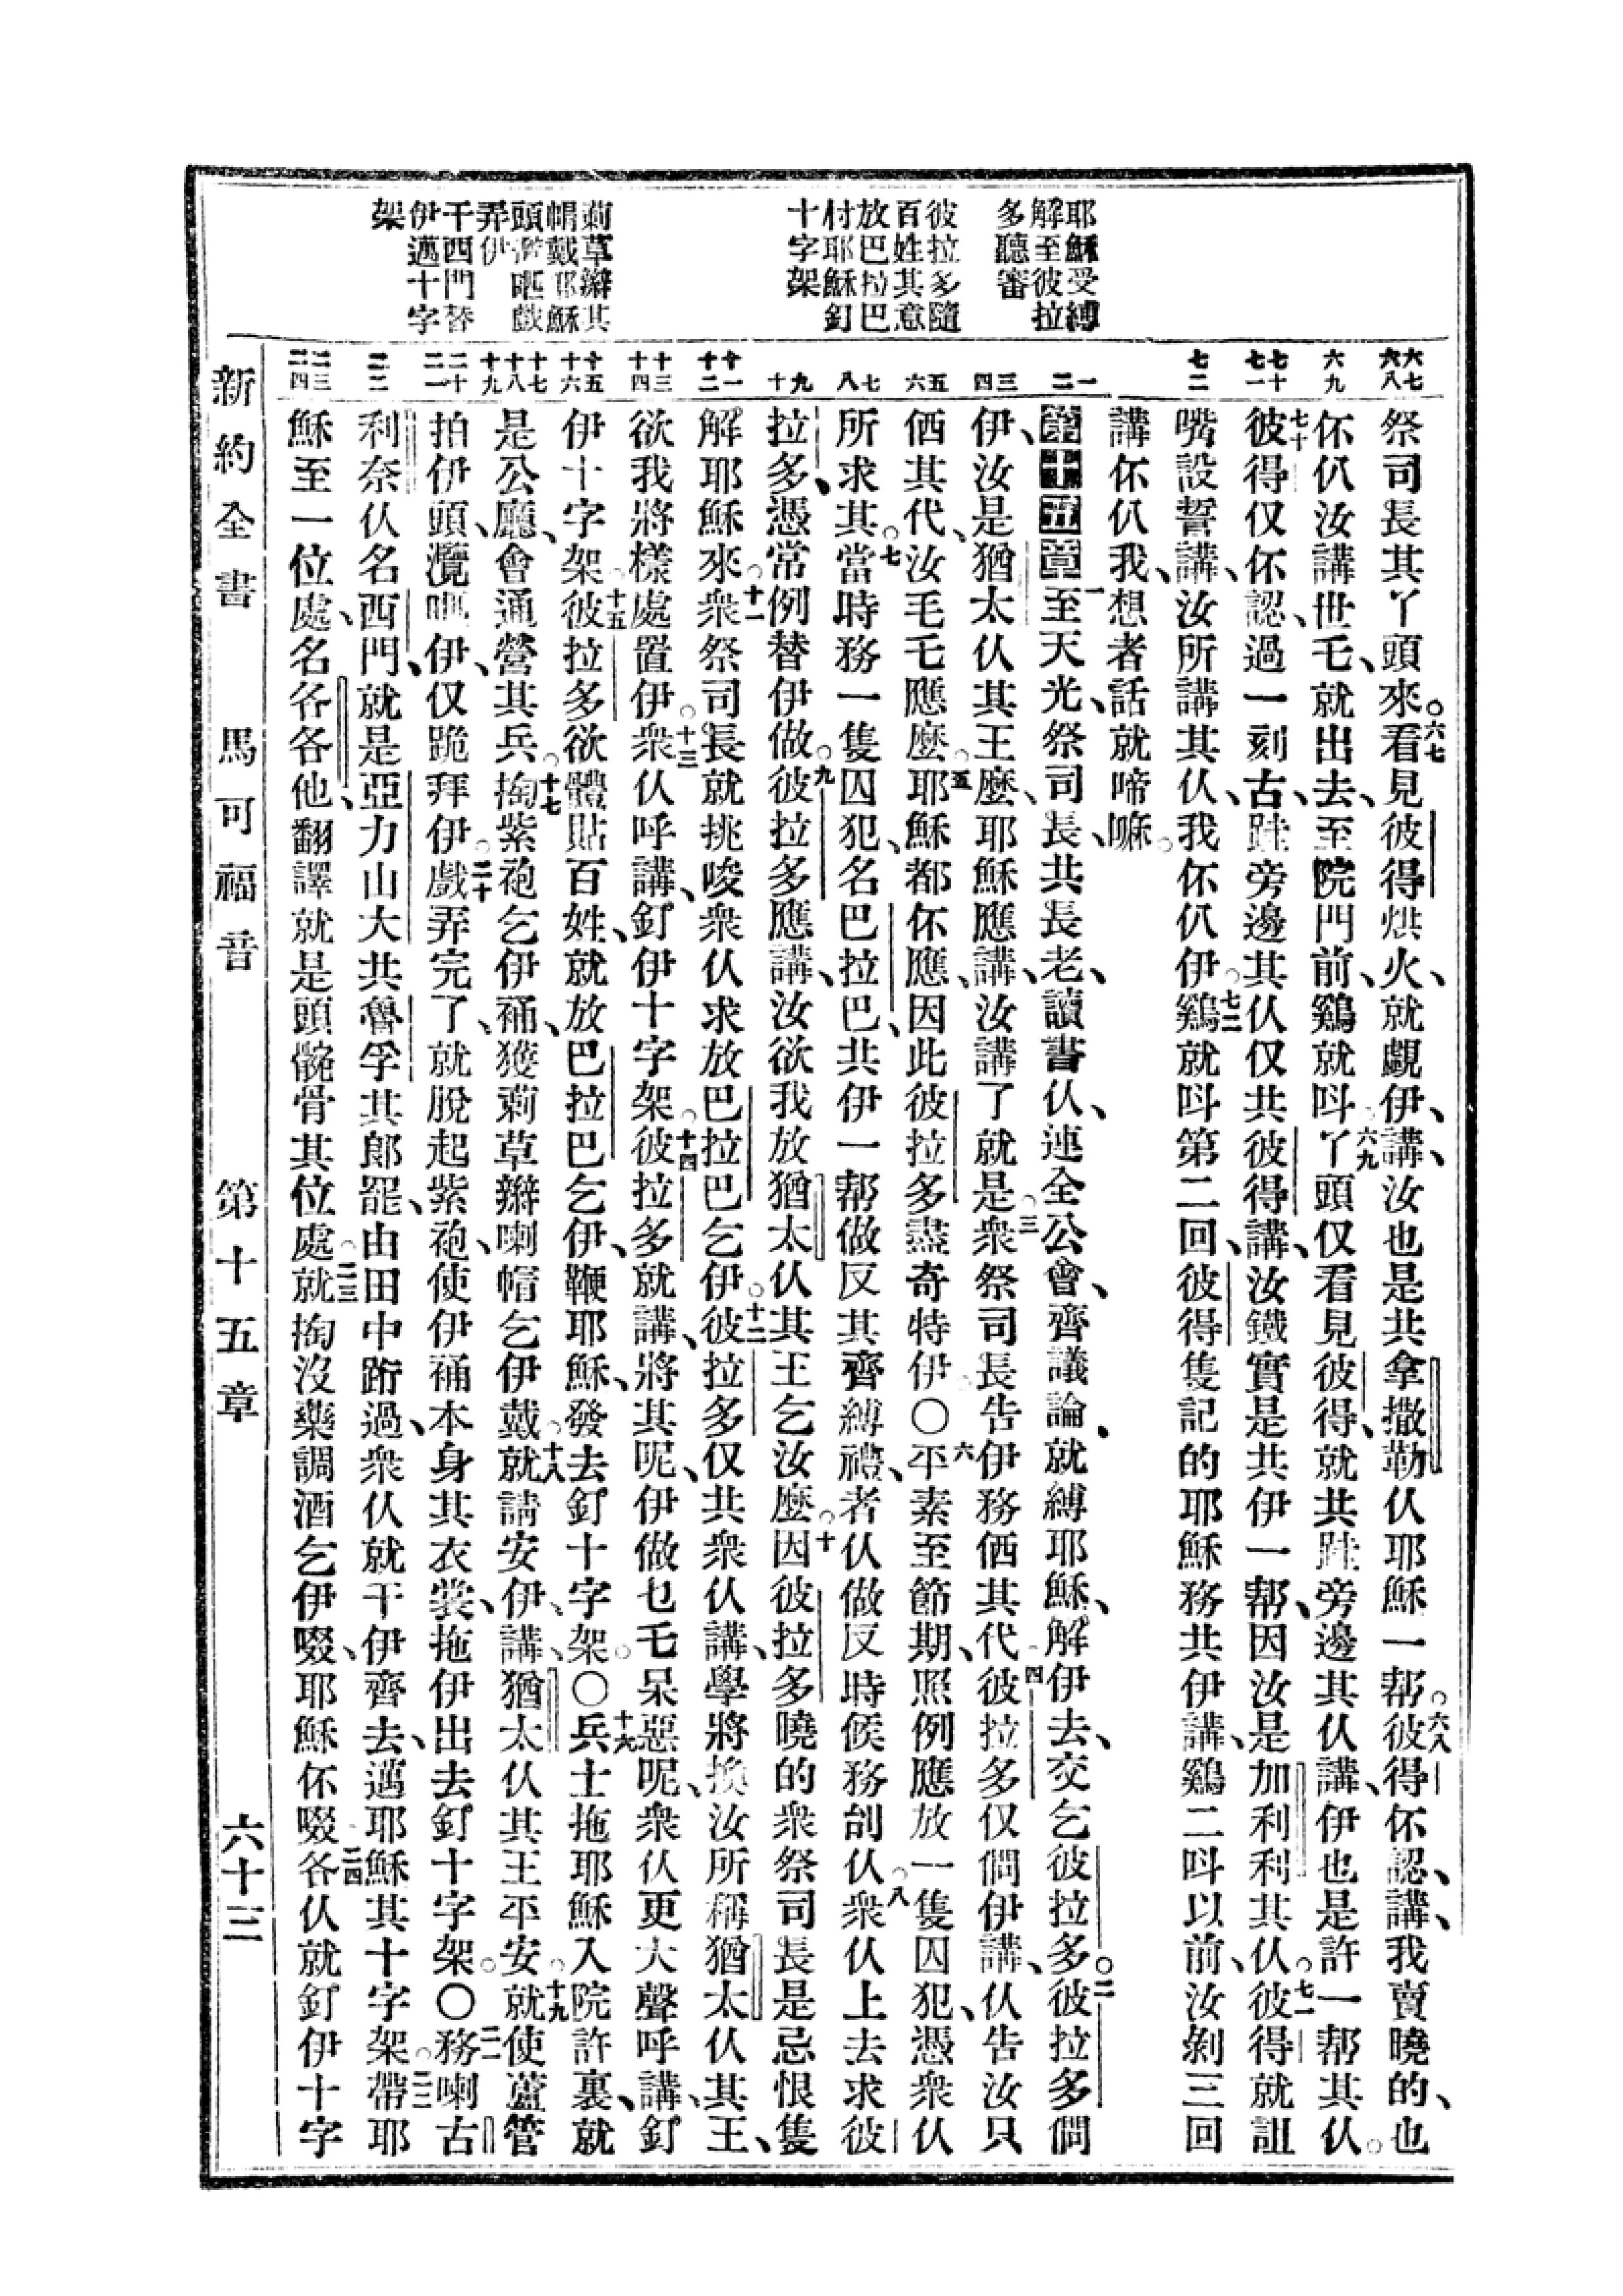 耶穌受縛
解至彼拉
多聽審
彼拉多隨
百姓其意
放巴拉巴
付耶穌釘
十字架
莿草辮其
帽戴耶穌
頭
弄伊
干西門替
伊邁十字
架
六七
六八
六九
七十
七一
七二
一
二
三
四
五
六
七
八
九
十
十一
十二
十三
十四
十五
十六
十七
十八
十九
二十
二一
二二
二三
二四
祭司長其丫頭來。六七看見彼得烘火、就覷伊、講、汝也是共拿撒勒仈耶穌一帮。六八彼得伓認、講、我賣曉的、也
伓仈汝講世乇、就出去、至院門前、鷄就呌。六九丫頭仅看見彼得、就共跓旁邊其仈講、伊也是許一帮其仈。
七十彼得仅伓認、過一刻古、跓旁邊其仈仅共彼得講、汝鐵實是共伊一帮、因汝是加利利其仈。七一彼得就詛
嘴設誓講、汝所講其仈、我伓仈伊。七二鷄就呌第二回、彼得隻記的耶穌務共伊講、鷄二呌以前、汝剝三回
講伓仈我、想者話就啼嘛。
第十五章一至天光、祭司長、共長老、讀書仈、連全公會、齊議論、就縛耶穌、解伊去、交乞彼拉多。二彼拉多問
伊、汝是猶太仈其王麼、耶穌應講、汝講了就是。三衆祭司長告伊務価其代。四彼拉多仅問伊講、仈告汝只
価其代、汝乇乇應麼。五耶穌都伓應、因此彼拉多盡奇特伊。〇六平素至節期、照例應放一隻囚犯、憑衆仈
所求其。七當時務一隻囚犯、名巴拉巴、共伊一帮做反其齊縛禮、者仈做反時候務刣仈。八衆仈上去求彼
拉多、憑常例替伊做。九彼拉多應講、汝欲我放猶太仈其王乞汝麼。十因彼拉多曉的衆祭司長是忌恨隻
解耶穌來。十一衆祭司長就挑唆衆仈求放巴拉巴乞伊。十二彼拉多仅共衆仈講、學將換汝所稱猶太仈其王、
欲我將樣處置伊。十三衆仈呼講、釘伊十字架。十四彼拉多就講、將其呢、伊做乜乇呆惡呢、衆仈更大聲呼講、釘
伊十字架。十五彼拉多欲體貼百姓、就放巴拉巴乞伊、鞭耶穌、發去釘十字架。〇十六兵士拖耶穌入院許裏、就
是公廳、會通營其兵。十七掏紫袍乞伊䘄、獲莿草辮喇帽乞伊戴。十八就請安伊、講、猶太仈其王平安。十九就使蘆管
拍伊頭、伊、仅跪拜伊。二十戲弄完了、就脫起紫袍、使伊䘄本身其衣裳、拖伊出去釘十字架。〇二一務喇古
利奈仈名西門、就是亞力山大共魯孚其郎罷、由田中跡過、衆仈就干伊齊去、邁耶穌其十字架。二二帶耶
穌至一位處、名各各他、翻譯就是頭髗骨其位處。二三就掏沒藥調酒乞伊啜、耶穌伓啜。二四各仈就釘伊十字
新約全書　馬可福音　第十五章　六十三